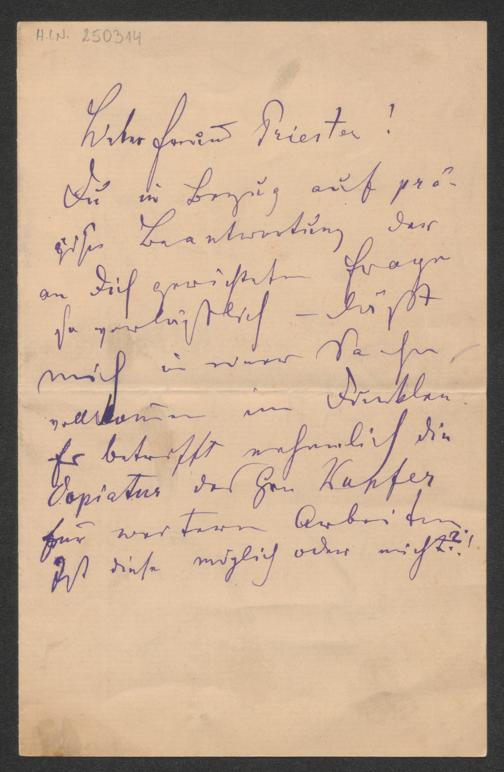 H.I.N. 250314
Lieber Freund Priester!
Du in Bezug auf prä-
zise Beantwortung der
an Dich gerichteten Frage
so verläßlich – läßt
mich in einer Sache,
vollkommen im Dunklen.
Es betrifft nehmlich die
Copiatur des Hrn Kapfer
für weitere Arbeiten
Ist diese möglich oder nicht?!